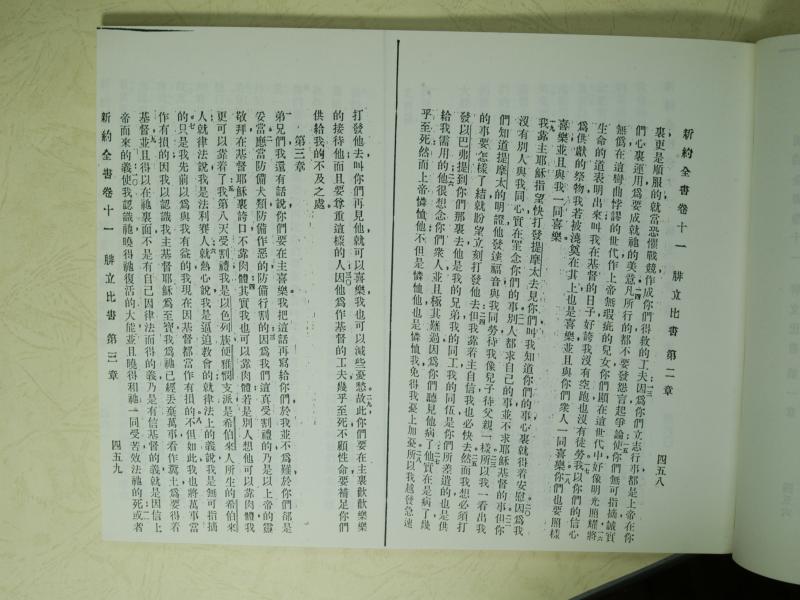 新約全書卷十一 腓立比書 第二章 四五八
裏、更是順服的、就當恐懼戰兢、作成你們得救的工夫、因爲你們立志行事、都是上帝在你
們心裏運用、爲要成就祂的美意、凡所行的、都不要發怨言起爭論、使你們無可指摘、誠實
無僞、在這彎曲悖謬的世代、作上帝無瑕疵的兒女、你們顯在這世代中、好像明光照耀、將
生命的道表明出來、叫我在基督的日子、好誇我沒有空跑、也沒有徒勞、我以你們的信心
爲供獻的祭物、我若被澆奠在其上、也是喜樂、並且與你們衆人一同喜樂、你們也要照樣
喜樂、並且與我一同喜樂、
我靠主耶穌指望快打發提摩太去見你們、叫我知道你們的事、心裏就得着安慰、因爲我
沒有別人與我同心、實在罣念你們的事、別人都求自己的事、並不求耶穌基督的事、但你
們知道提摩太的明證、他發達福音與我同勞、待我像兒子待父親一樣、所以我一看出我
的事要怎樣了結、就盼望立刻打發他去、但我靠着主自信我也必快去、然而我想必須打
發以巴弗提到你們那裏去、他是我的兄弟、我的同工、我的同伍、是你們所差遣的、也是供
給我需用的、他很想念你們衆人、並且極其難過、因爲你們聽見他病了、他實在是病了、幾
乎至死、然而上帝憐恤他、不但是憐恤他、也是憐恤我、免得我憂上加憂、所以我越發急速
打發他去、叫你們再見他、就可以喜樂、我也可以減些憂愁、故此你們要在主裏歡歡樂樂
的接待他、而且要尊重這樣的人、因他爲作基督的工夫、幾乎至死、不顧性命、要補足你們
供給我的不及之處、
第三章
弟兄們、我還有話說、你們要在主喜樂、我把這話再寫給你們、於我並不爲難、於你們卻是
妥當、應當防備犬類、防備作惡的、防備行割的、因爲我們這眞受割禮的、乃是以上帝的靈
敬拜、在基督耶穌裏誇口、不靠肉體、其實我也可以靠肉體、若是別人想他可以靠肉體、我
更可以靠着了、我第八天受割禮、我是以色列族便雅憫支派、是希伯來人所生的希伯來
人、就律法說、我是法利賽人、就熱心說、我是逼迫敎會的、就律法上的義說、我是無可指摘
的、只是我先前以爲與我有益的、我現在因基督都當作有損的、不但如此、我也將萬事當
作有損的、因我以認識我主基督耶穌爲至寶、我爲祂已經丟棄萬事、看作糞土、爲要得着
基督、並且得以在祂裏面、不是有自己因律法而得的義、乃是有信基督的義、就是因信上
帝而來的義、使我認識祂、曉得祂復活的大能、並且曉得和祂一同受苦、效法祂的死、或者
新約全書卷十一 腓立比書 第三章 四五九